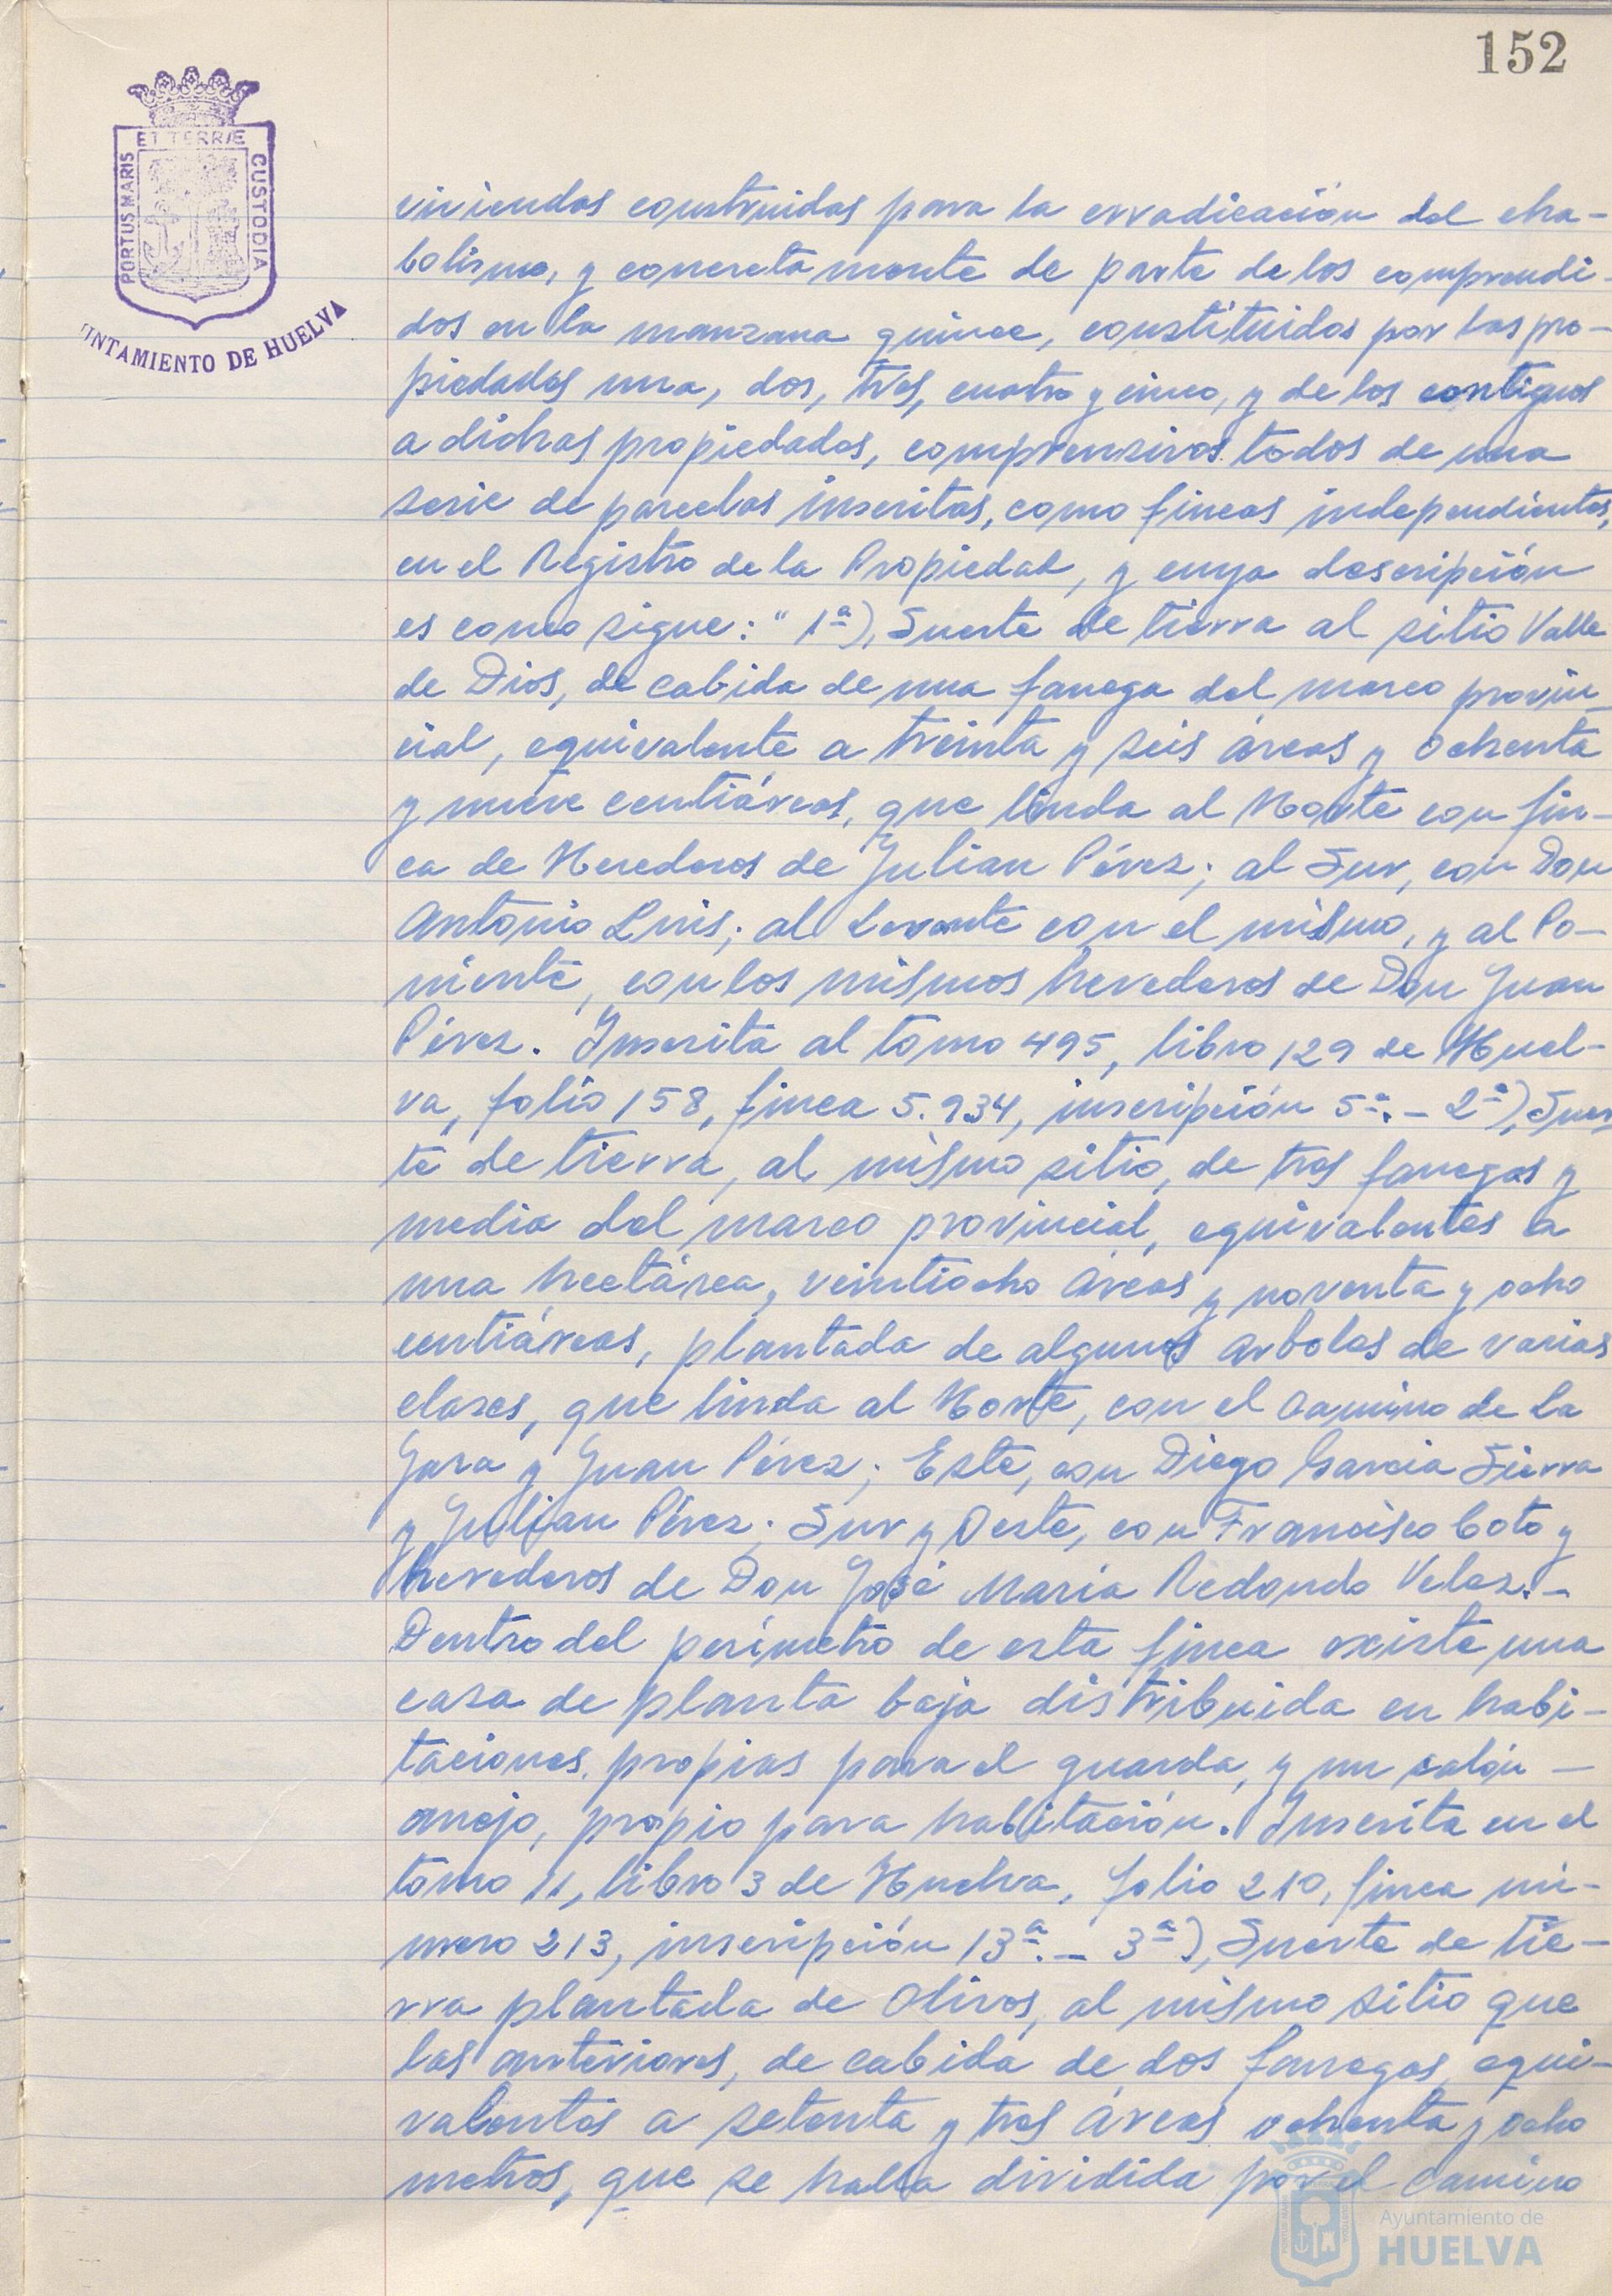 152
PORTUS MARIS ET TERRÆ CUSTODIA
UNTAMIENTO DE HUELVA
viviendas construidas para la erradicación del cha-
bolismo, y concretamente de parte de los comprendi-
dos en la manzana quince, constituidos por las pro-
piedades una, dos, tres, cuatro y cinco, y de los contiguos
a dichas propiedades, comprensivos todos de una
serie de parcelas inscritas, como fincas independientes,
en el Registro de la Propiedad, y cuya descripción
es como sigue: " 1ª), Suerte de tierra al sitio Valle
de Dios, de cabida de una fanega del marco provin-
cial, equivalente a treinta y seis áreas y ochenta
y nueve centiáreas, que linda al Norte con fin-
ca de Herederos de Julian Pérez; al Sur, con Don
Antonio Luis; al Levante con el mismo, y al Po-
niente, con los mismos herederos de Don Juan
Pérez. Inscrita al tomo 495, libro 129 de Huel-
va, folio 158, finca 5.934, inscripción 5ª.- 2ª), Suer-
te de tierra, al mismo sitio, de tres fanegas y
media del marco provincial, equivalentes a
una hectárea, veintiocho áreas y noventa y ocho
centiáreas, plantada de algunos arboles de varias
clases, que linda al Norte, con el camino de la
Jara y Juan Pérez; Este, con Diego Garcia Sierra
y Julian Pérez; Sur y Oeste, con Francisco Coto y
herederos de Don José Maria Redondo Velez.-
Dentro del perímetro de esta finca existe una
casa de planta baja distribuida en habi-
taciones propias para el guarda, y un salón -
anejo, propio para habitación. Inscrita en el
tomo 11, libro 3 de Huelva, folio 210, finca nú-
mero 213, inscripción 13ª.- 3ª), Suerte de tie-
rra plantada de olivos, al mismo sitio que
las anteriores, de cabida de dos fanegas, equi-
valentes a setenta y tres áreas ochenta y ocho
metros, que se halla dividida por el camino
Ayuntamiento de
HUELVA